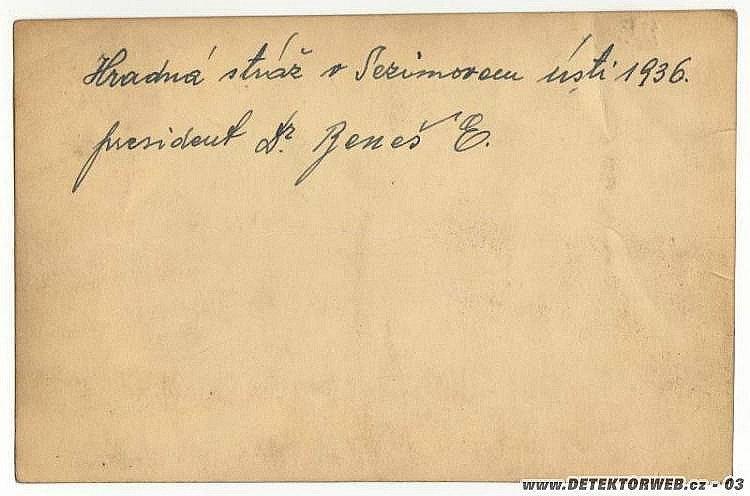 Hradná stráž v Sezimovem ústi 1936.
president Dr. Beneš E.
www.DETEKTORWEB.cz - 03